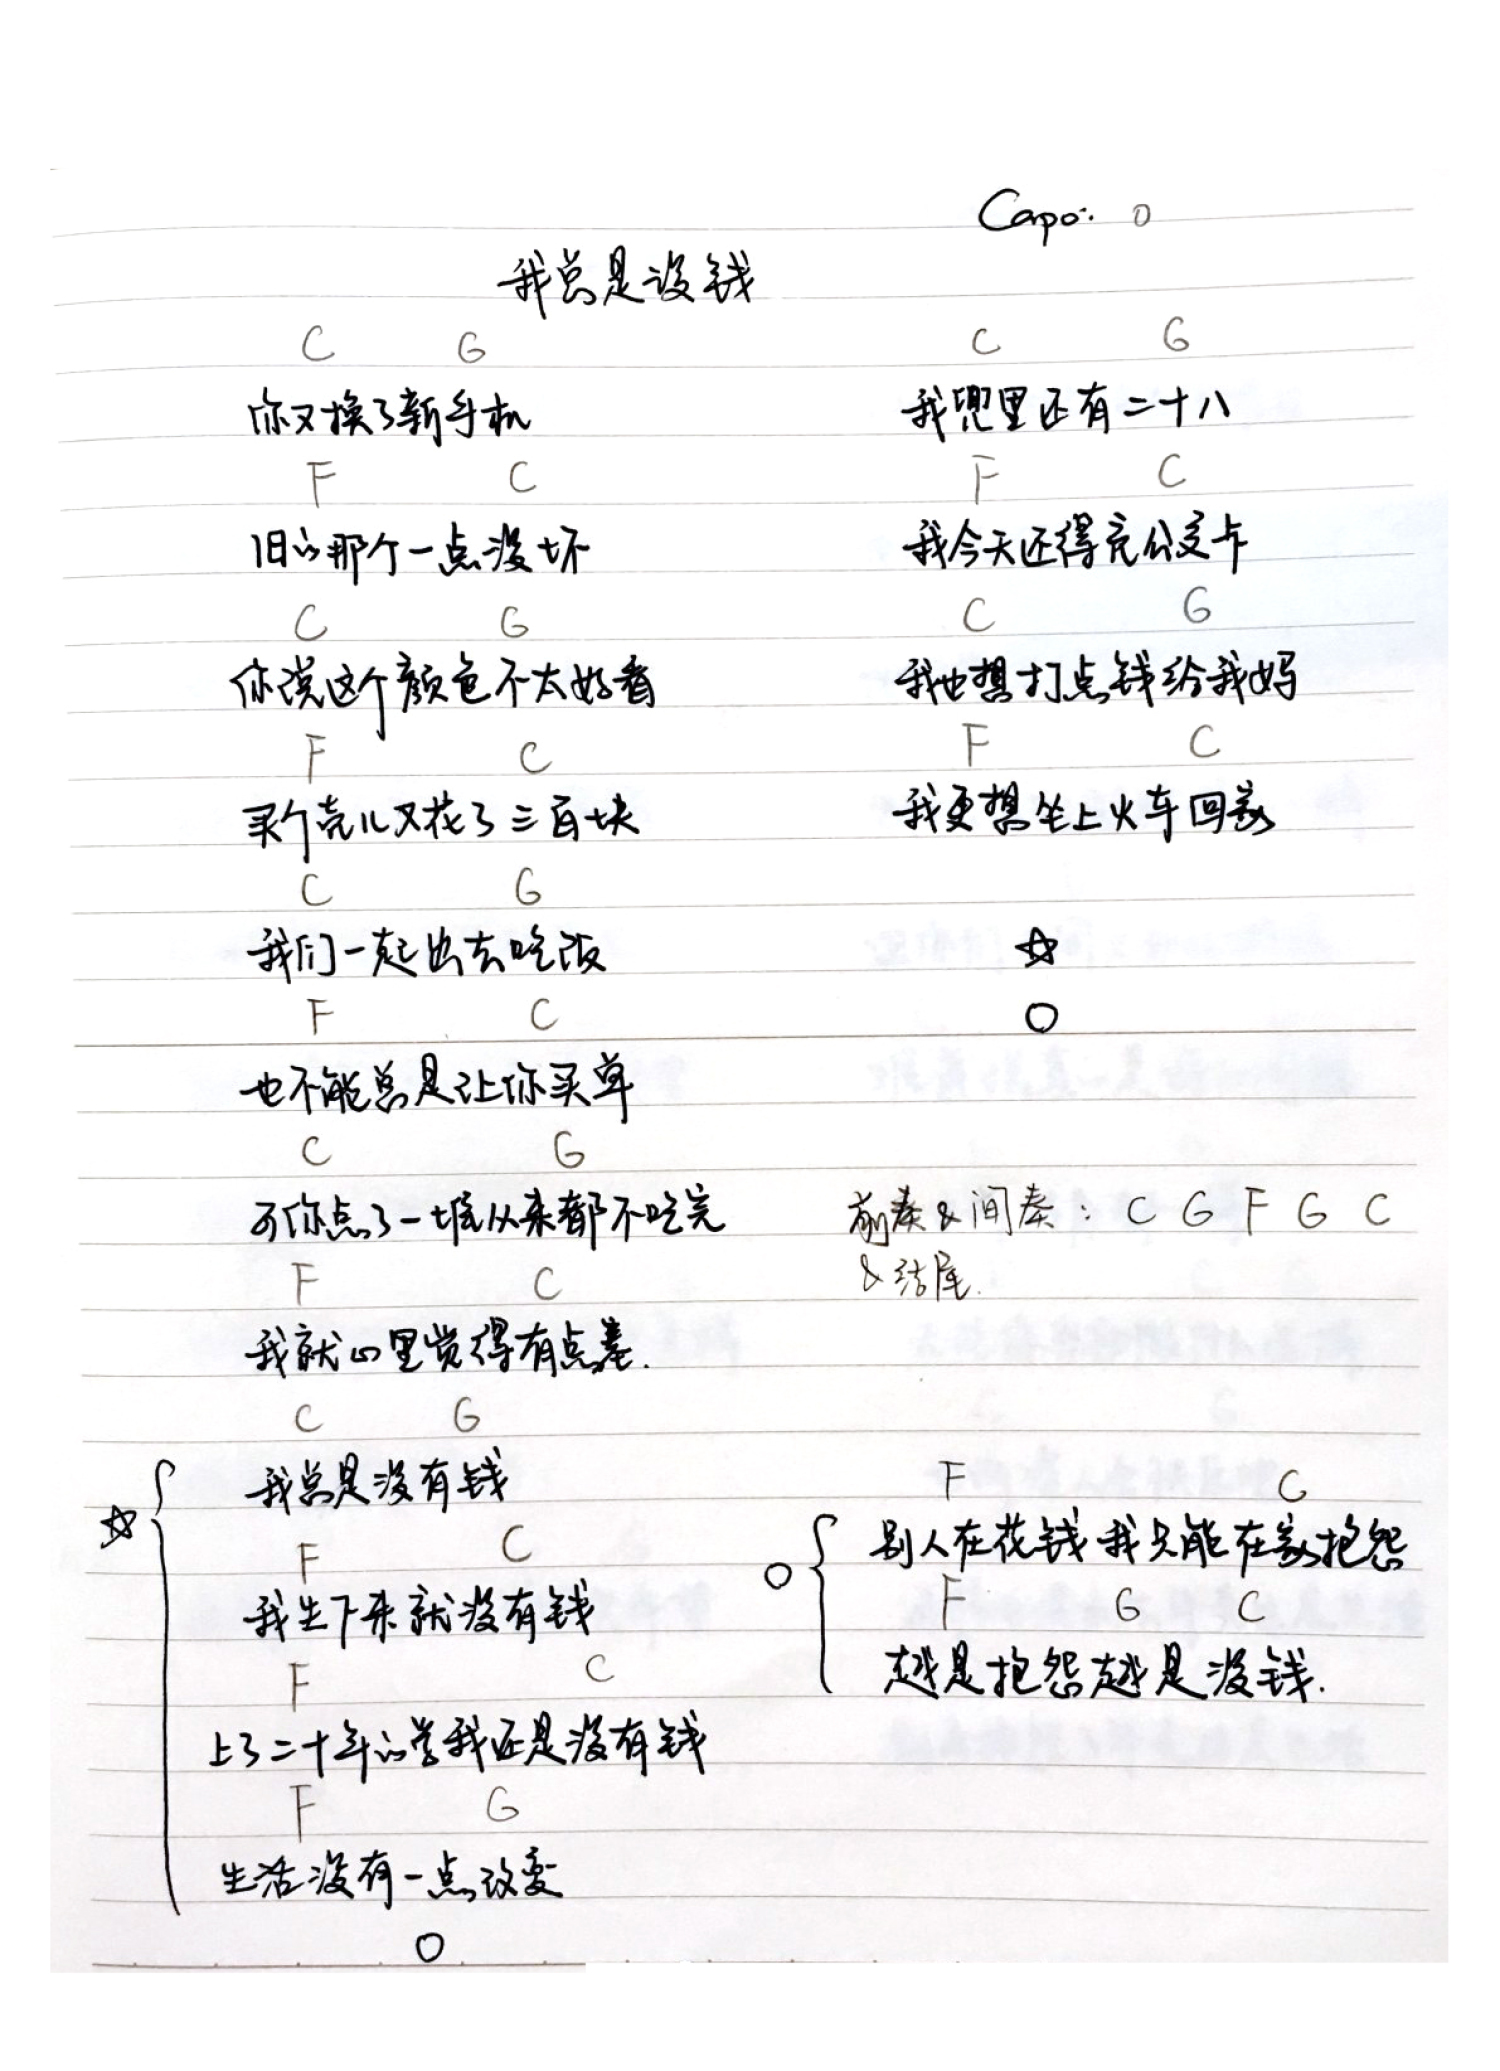 Capo: 0
我总是没钱
C G
你又换了新手机
F C
旧的那个一点没坏
C G
你说这个颜色不太好看
F C
买个壳儿又花了三百块
C G
我们一起出去吃饭
F C
也不能总是让你买单
C G
可你点了一堆从来都不吃完
F C
我就心里觉得有点差.
C G
☆ 我总是没有钱
F C
我生下来就没有钱
F C
上了二十年的学我还是没有钱
F G
生活没有一点改变
O
C G
我兜里还有二十八
F C
我今天还得充公交卡
C G
我也想打点钱给我妈
F C
我更想坐上火车回家
☆
O
前奏&间奏: C G F G C
&结尾.
F C
O 别人在花钱我只能在家抱怨
F G C
越是抱怨越是没钱.